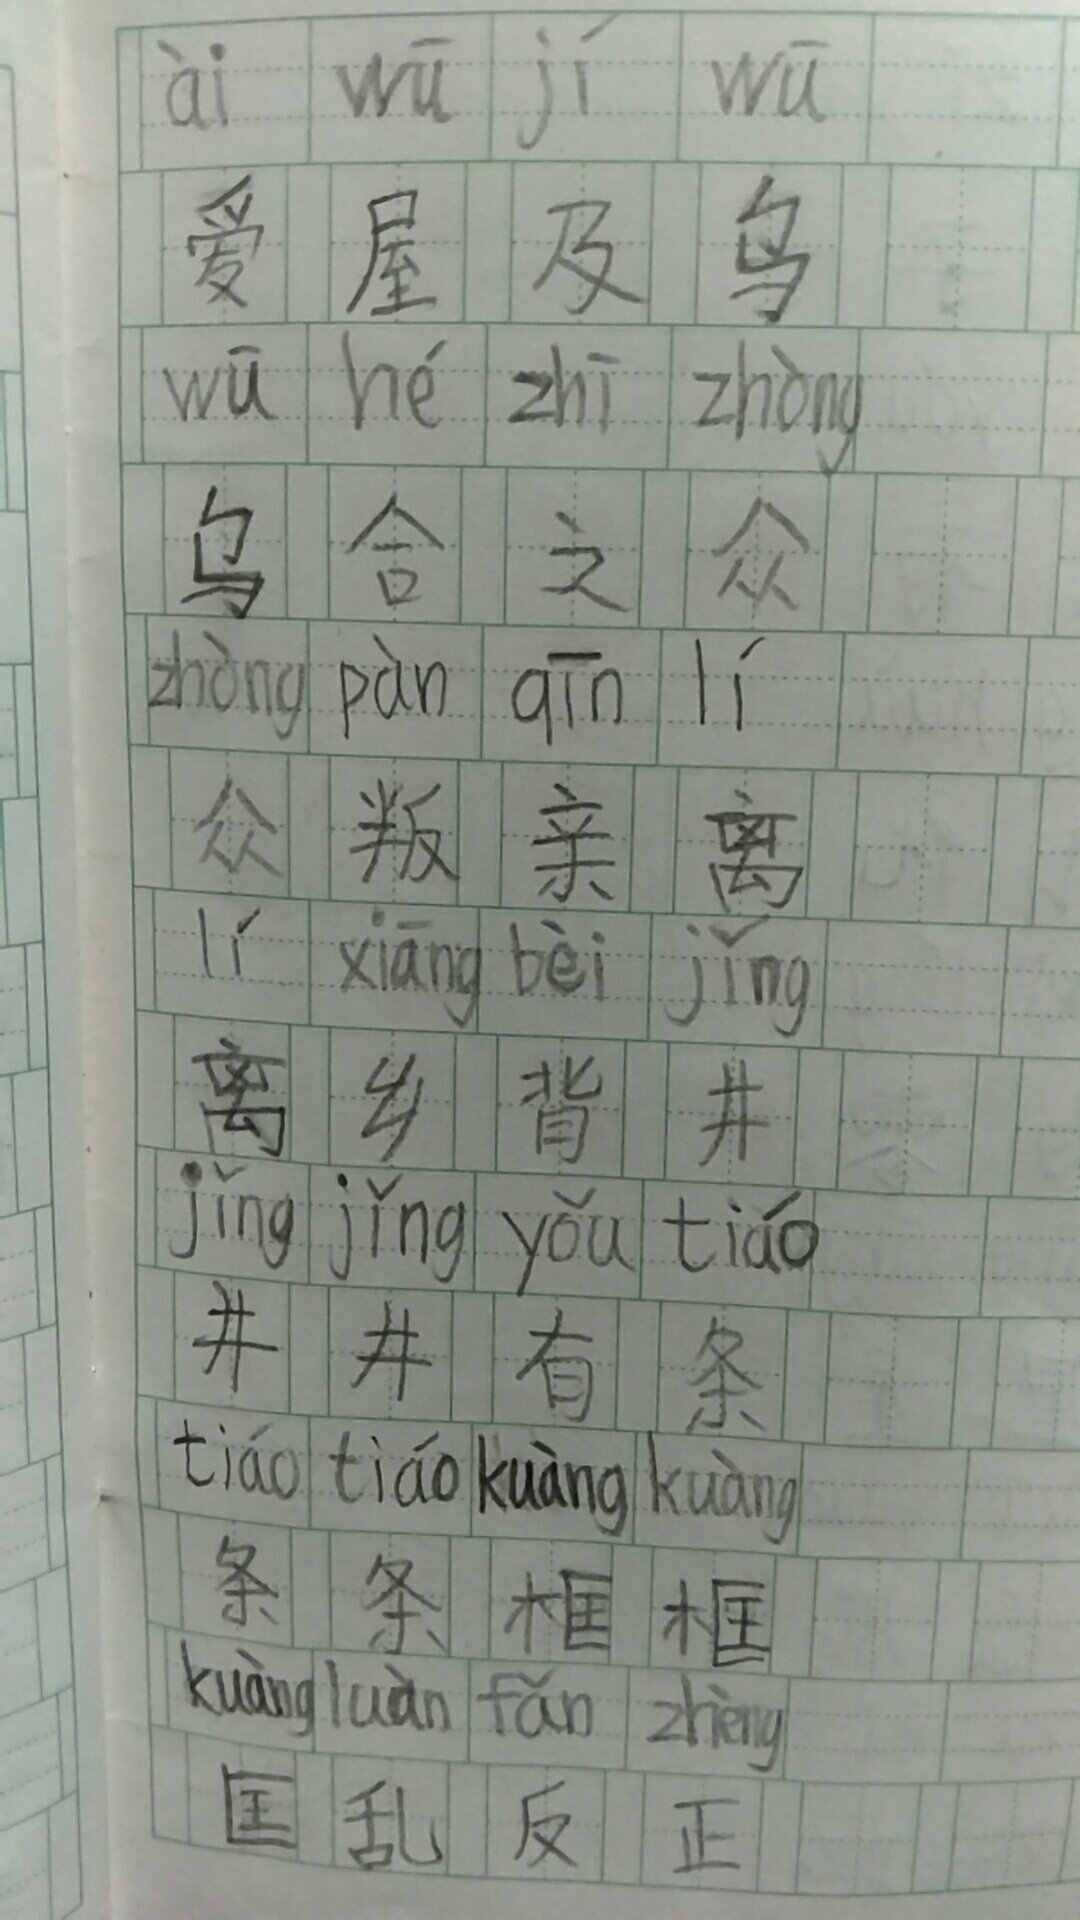 ài wū jí wū
爱 屋 及 乌
wū hé zhī zhòng
乌 合 之 众
zhòng pàn qīn lí
众 叛 亲 离
lí xiāng bèi jǐng
离 乡 背 井
jǐng jǐng yǒu tiáo
井 井 有 条
tiáo tiáo kuàng kuàng
条 条 框 框
kuàng luàn fǎn zhèng
匡 乱 反 正